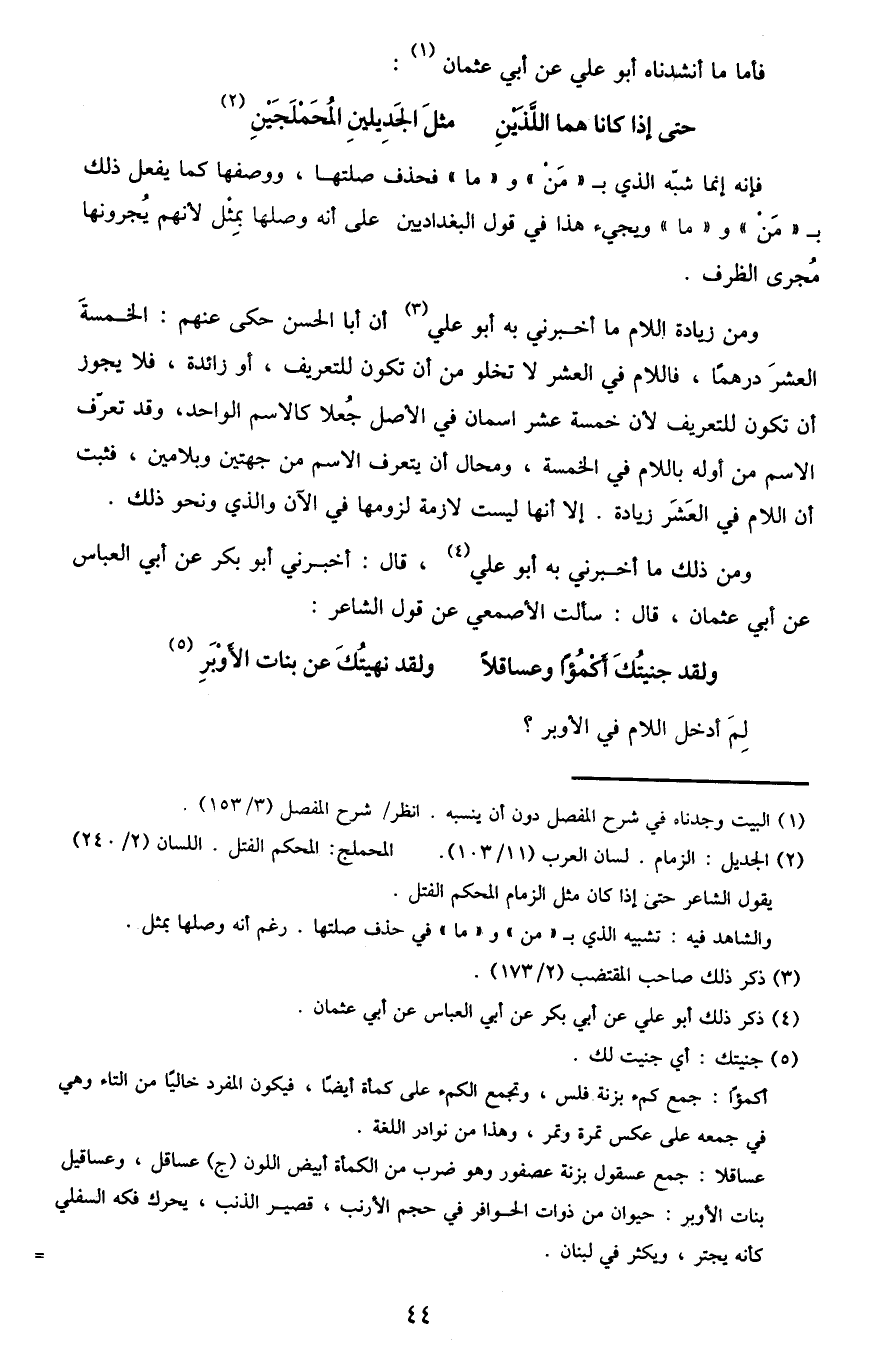 فأما ما أنشدناه أبو علي عن أبي عثمان (١) :
حتى إذا كانا هما اللَّذَيْنِ مثلَ الجَديلينِ المُحَمْلَجَيْنِ (٢)
فإنه إنما شبّه الذي بـ « مَنْ » و « ما » فحذف صلتهـا ، ووصفها كما يفعل ذلك
بـ « مَنْ » و « ما » ويجيء هذا في قول البغداديين على أنه وصلها بِمثْل لأنهم يُجرونها
مُجرى الظرف .
ومن زيادة اللام ما أخـبرني به أبو علي (٣) أن أبا الحسن حكى عنهم : الخـمسةَ
العشرَ درهمًا ، فاللام في العشر لا تخلو من أن تكون للتعريف ، أو زائدة ، فلا يجوز
أن تكون للتعريف لأن خمسة عشر اسمان في الأصل جُعلا كالاسم الواحد، وقد تعرّف
الاسم من أوله باللام في الخمسة ، ومحال أن يتعرف الاسم من جهتين وبلامين ، فثبت
أن اللام في العَشَر زيادة . إلا أنها ليست لازمة لزومها في الآن والذي ونحو ذلك .
ومن ذلك ما أخـبرني به أبو علي (٤) ، قال : أخبـرني أبو بكر عن أبي العباس
عن أبي عثمان ، قال : سألت الأصمعي عن قول الشاعر :
ولقد جنيتُكَ أَكْمُؤًا وعساقلاً ولقد نهيتُكَ عن بنات الأَوْبَرِ (٥)
لِمَ أدخل اللام في الأوبر ؟
(١) البيت وجدناه في شرح المفصل دون أن ينسبه . انظر/ شرح المفصل (٣/ ١٥٣) .
(٢) الجديل : الزمام . لسان العرب (١١/ ١٠٣). المحملج: المحكم الفتل . اللسان (٢/ ٢٤٠)
يقول الشاعر حتى إذا كان مثل الزمام المحكم الفتل .
والشاهد فيه : تشبيه الذي بـ « من » و « ما » في حذف صلتها . رغم أنه وصلها بمثل .
(٣) ذكر ذلك صاحب المقتضب (٢/ ١٧٣) .
(٤) ذكر ذلك أبو علي عن أبي بكر عن أبي العباس عن أبي عثمان .
(٥) جنيتك : أي جنيت لك .
أكمؤًا : جمع كمء بزنة فلس ، وتجمع الكمء على كمأة أيضًا ، فيكون المفرد خاليًا من التاء وهي
في جمعه على عكس تمرة وتمر ، وهذا من نوادر اللغة .
عساقلا : جمع عسقول بزنة عصفور وهو ضرب من الكمأة أبيض اللون (ج) عساقل ، وعساقيل
بنات الأوبر : حيوان من ذوات الحـوافر في حجم الأرنب ، قصيـر الذنب ، يحرك فكه السفلي
كأنه يجتر ، ويكثر في لبنان .
=
٤٤